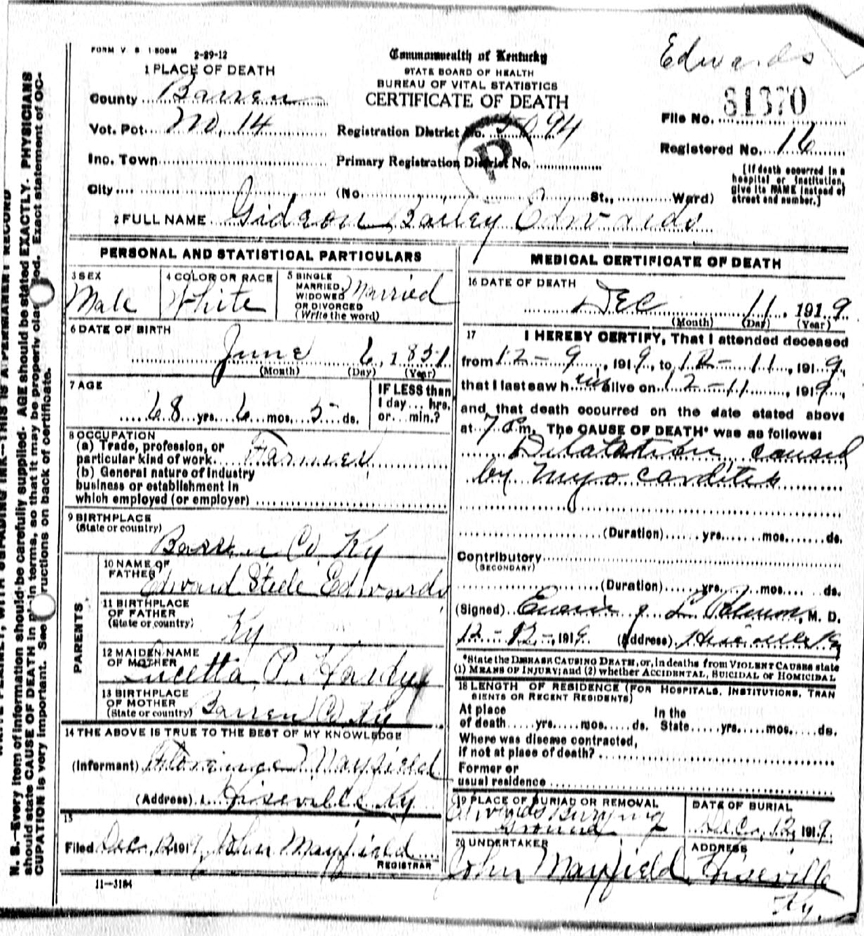 Edwards
FORM V. S 1-50BM 2-29-12
Commonwealth of Kentucky
STATE BOARD OF HEALTH
BUREAU OF VITAL STATISTICS
CERTIFICATE OF DEATH
1 PLACE OF DEATH
County Barren
Vot. Pct. No. 14
Inc. Town
City
Registration District No. 5094
Primary Registration District No.
(No. St., Ward)
File No. 31370
Registered No. 16
[If death occurred in a
hospital or institution,
give its NAME instead of
street and number.]
2 FULL NAME Gideon Bailey Edwards
PERSONAL AND STATISTICAL PARTICULARS
3 SEX
Male
4 COLOR OR RACE
White
5 SINGLE
MARRIED,
WIDOWED
OR DIVORCED
(Write the word)
Married
6 DATE OF BIRTH
June 6, 1851
(Month) (Day) (Year)
7 AGE
68 yrs. 6 mos. 5 ds.
IF LESS than
1 day... hrs.
or... min.?
8 OCCUPATION
(a) Trade, profession, or
particular kind of work Farmer
(b) General nature of industry
business or establishment in
which employed (or employer)
9 BIRTHPLACE
(State or country)
Barren Co Ky
PARENTS
10 NAME OF
FATHER
Edward Steele Edwards
11 BIRTHPLACE
OF FATHER
(State or country)
Ky
12 MAIDEN NAME
OF MOTHER
Lucetta P. Hardy
13 BIRTHPLACE
OF MOTHER
(State or country) Barren Co Ky
14 THE ABOVE IS TRUE TO THE BEST OF MY KNOWLEDGE
(Informant) Florence Mayfield
(Address) Hiseville Ky
15
Filed Dec, 12 1919 John Mayfield
REGISTRAR
11-3184
MEDICAL CERTIFICATE OF DEATH
16 DATE OF DEATH
Dec 11, 1919
(Month) (Day) (Year)
17 I HEREBY CERTIFY, That I attended deceased
from 12-9, 1919, to 12-11, 1919,
that I last saw him alive on 12-11, 1919,
and that death occurred on the date stated above
at 7 m. The CAUSE OF DEATH* was as follows:
Dilatation caused
by Myocarditis
(Duration) yrs. mos. ds.
Contributory
(SECONDARY)
(Duration) yrs. mos. ds.
(Signed) M. D.
12-12-, 1919 (Address) Hiseville Ky
*State the DISEASE CAUSING DEATH, or, in deaths from VIOLENT CAUSES state
(1) MEANS OF INJURY; and (2) whether ACCIDENTAL, SUICIDAL or HOMICIDAL
18 LENGTH OF RESIDENCE (FOR HOSPITALS, INSTITUTIONS, TRAN
SIENTS OR RECENT RESIDENTS)
At place In the
of death yrs. mos. ds. State yrs. mos. ds.
Where was disease contracted,
if not at place of death?
Former or
usual residence
19 PLACE OF BURIAL OR REMOVAL
Edwards Burying
Ground
DATE OF BURIAL
Dec, 12, 1919
20 UNDERTAKER
John Mayfield
ADDRESS
Hiseville
Ky.
N. B.—Every item of information should be carefully supplied. AGE should be stated EXACTLY. PHYSICIANS
should state CAUSE OF DEATH in terms, so that it may be properly classified. Exact statement of OC-
CUPATION is very important. See instructions on back of certificate.